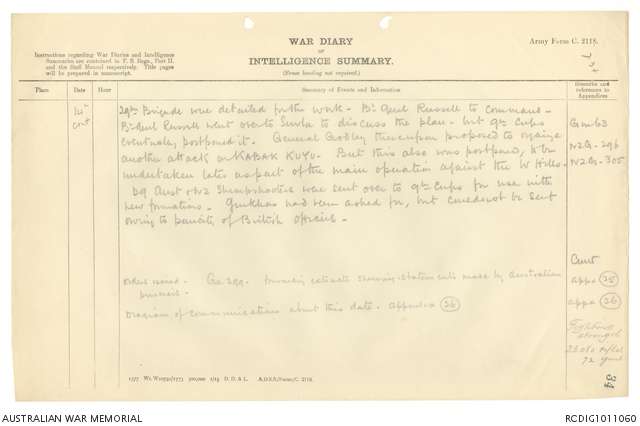 WAR DIARY
OF
INTELLIGENCE SUMMARY.
(Erase heading not required.)
Army Form C. 2118.
Instructions regarding War Diaries and Intelligence
Summaries are contained in F. S. Regs., Part II.
and the Staff Manual respectively. Title pages
will be prepared in manuscript.
Place Date Hour Summary of Events and Information Remarks and references to Appendices
14th
cont
29th Brigade were detailed for the work - Br Genl Russell to Command -
Br Genl Russell went over to Suvla to discuss the plan - but 9th Corps
eventually postponed it. General Godley thereupon proposed to organize
another attack on KABAK KUYU. But this also was postponed, to be
undertaken later as part of the main operation against the W Hills -
29 Aust & NZ Sharpshooters were sent over to 9th Corps for use with
new formations - Gurkhas had been asked for, but could not be sent
owing to paucity of British officers -
G 63
NZG - 296
NZG - 305
Orders issued - Ga 299 - forwarding extracts showing statements made by Australian
prisoners -
Diagram of communications about this date - Appendix 26
appx 25
appx 26
Fighting
strength
23080 rifles
72 guns
34
1577 Wt. W10791/1773 500,000 1/15 D. D. & L. A.D.S.S./Forms/C. 2118.
AUSTRALIAN WAR MEMORIAL
RCDIG1011060